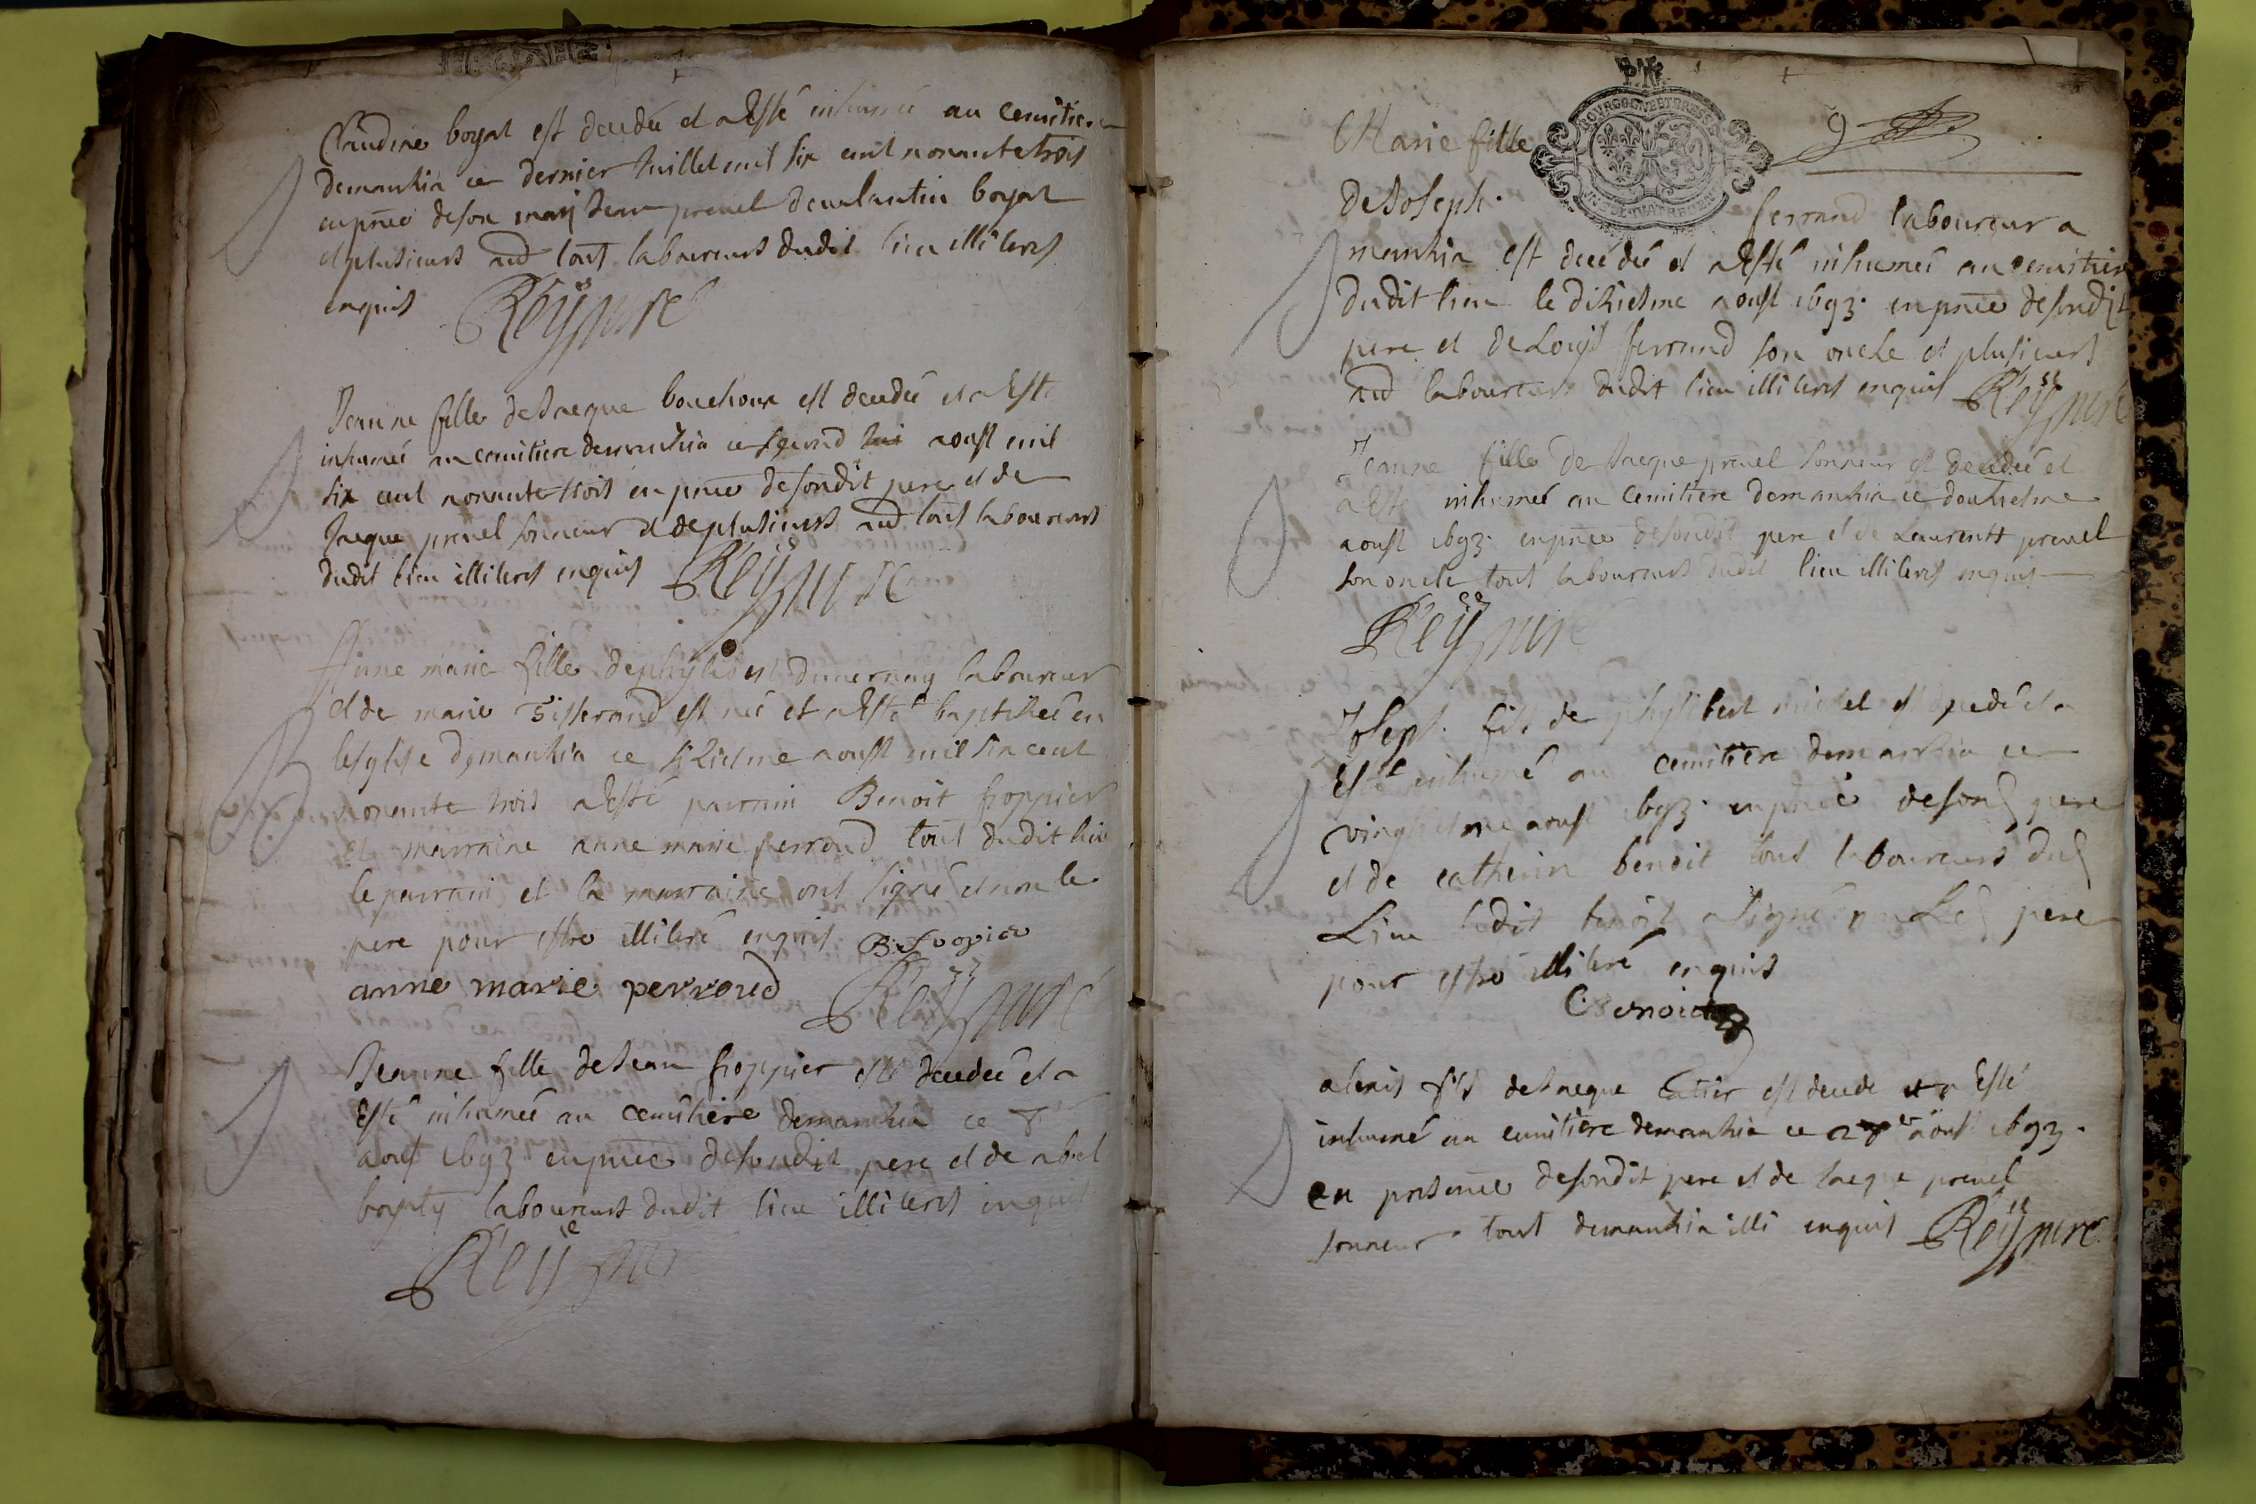 Claudine boyat est decedee et a Esté inhumée au cemitiere
demantzia ce dernier Juillet mil six cent nonante trois
en pñce de son mary Jean prevel devalantin boyat
et plusieurs aud tous laboureurs dudit lieu illiteres
enquis Reÿ pure
Jeanne fille de Jacque bouchoux est decedée et a Esté
inhumée au cemitiere demantzia ce second aoust mil
six cent nonante trois en pñce de sondit pere et de
Jacque prevel sonneur et de plusieurs aud tous laboureurs
dudit lieu illiteres enquis Reÿ pure
Anne marie fille de phylibert Duvernay laboureur
et de marie Tisserand est née et a Esté baptisée en
lesglise demantzia ce sixiesme aoust mil six cent
nonante trois a Esté parrain Benoit froppier
et marraine anne marie perroud tous dudit lieu
le parrain et la marraine ont signé et non le
pere pour estre illiteré enquis B. froopier
anne marie perroud Reÿ pure
Jeanne fille de Jean froppier est decedée et a
Esté inhumée au cemitiere demantzia ce 8e
aoust 1693 en pñce de sondit pere et de abel
laboureurs dudit lieu illiteres enquis
Reÿ pure
BOURGOGNE ET BRESSE
9
Marie fille
de Joseph ferrand laboureur a
mantzia est decedée et a Esté inhumée au cemitiere
dudit lieu le dixiesme aoust 1693. en pñce de sondit
pere et de Loujs ferrand son oncle et plusieurs
aud laboureurs dudit lieu illiteres enquis Reÿ pure
Jeanne fille de Jacque prevel sonneur est decedée et
a Esté inhumée au cemitiere demantzia ce douziesme
aoust 1693. en pñce de sondit pere et de Laurent prevel
son oncle tous laboureurs dudit lieu illiteres enquis
Reÿ pure
Joseph fils de phylibert michel est decedé et a
Esté inhumé au cemitiere demantzia ce
vingtiesme aoust 1693. en pñce de son pere
et de catherin benoit tous laboureurs dud
Lieu ledit benoit a signé non Led pere
pour estre illiteré enquis
C Benoict
alexis fils de Jacque Catier est decedé et a Esté
inhumé au cemitiere demantzia ce aoust 1693.
en presence de sondit pere et de Jacque prevel
sonneur tous demantzia illi enquis Reÿ pure